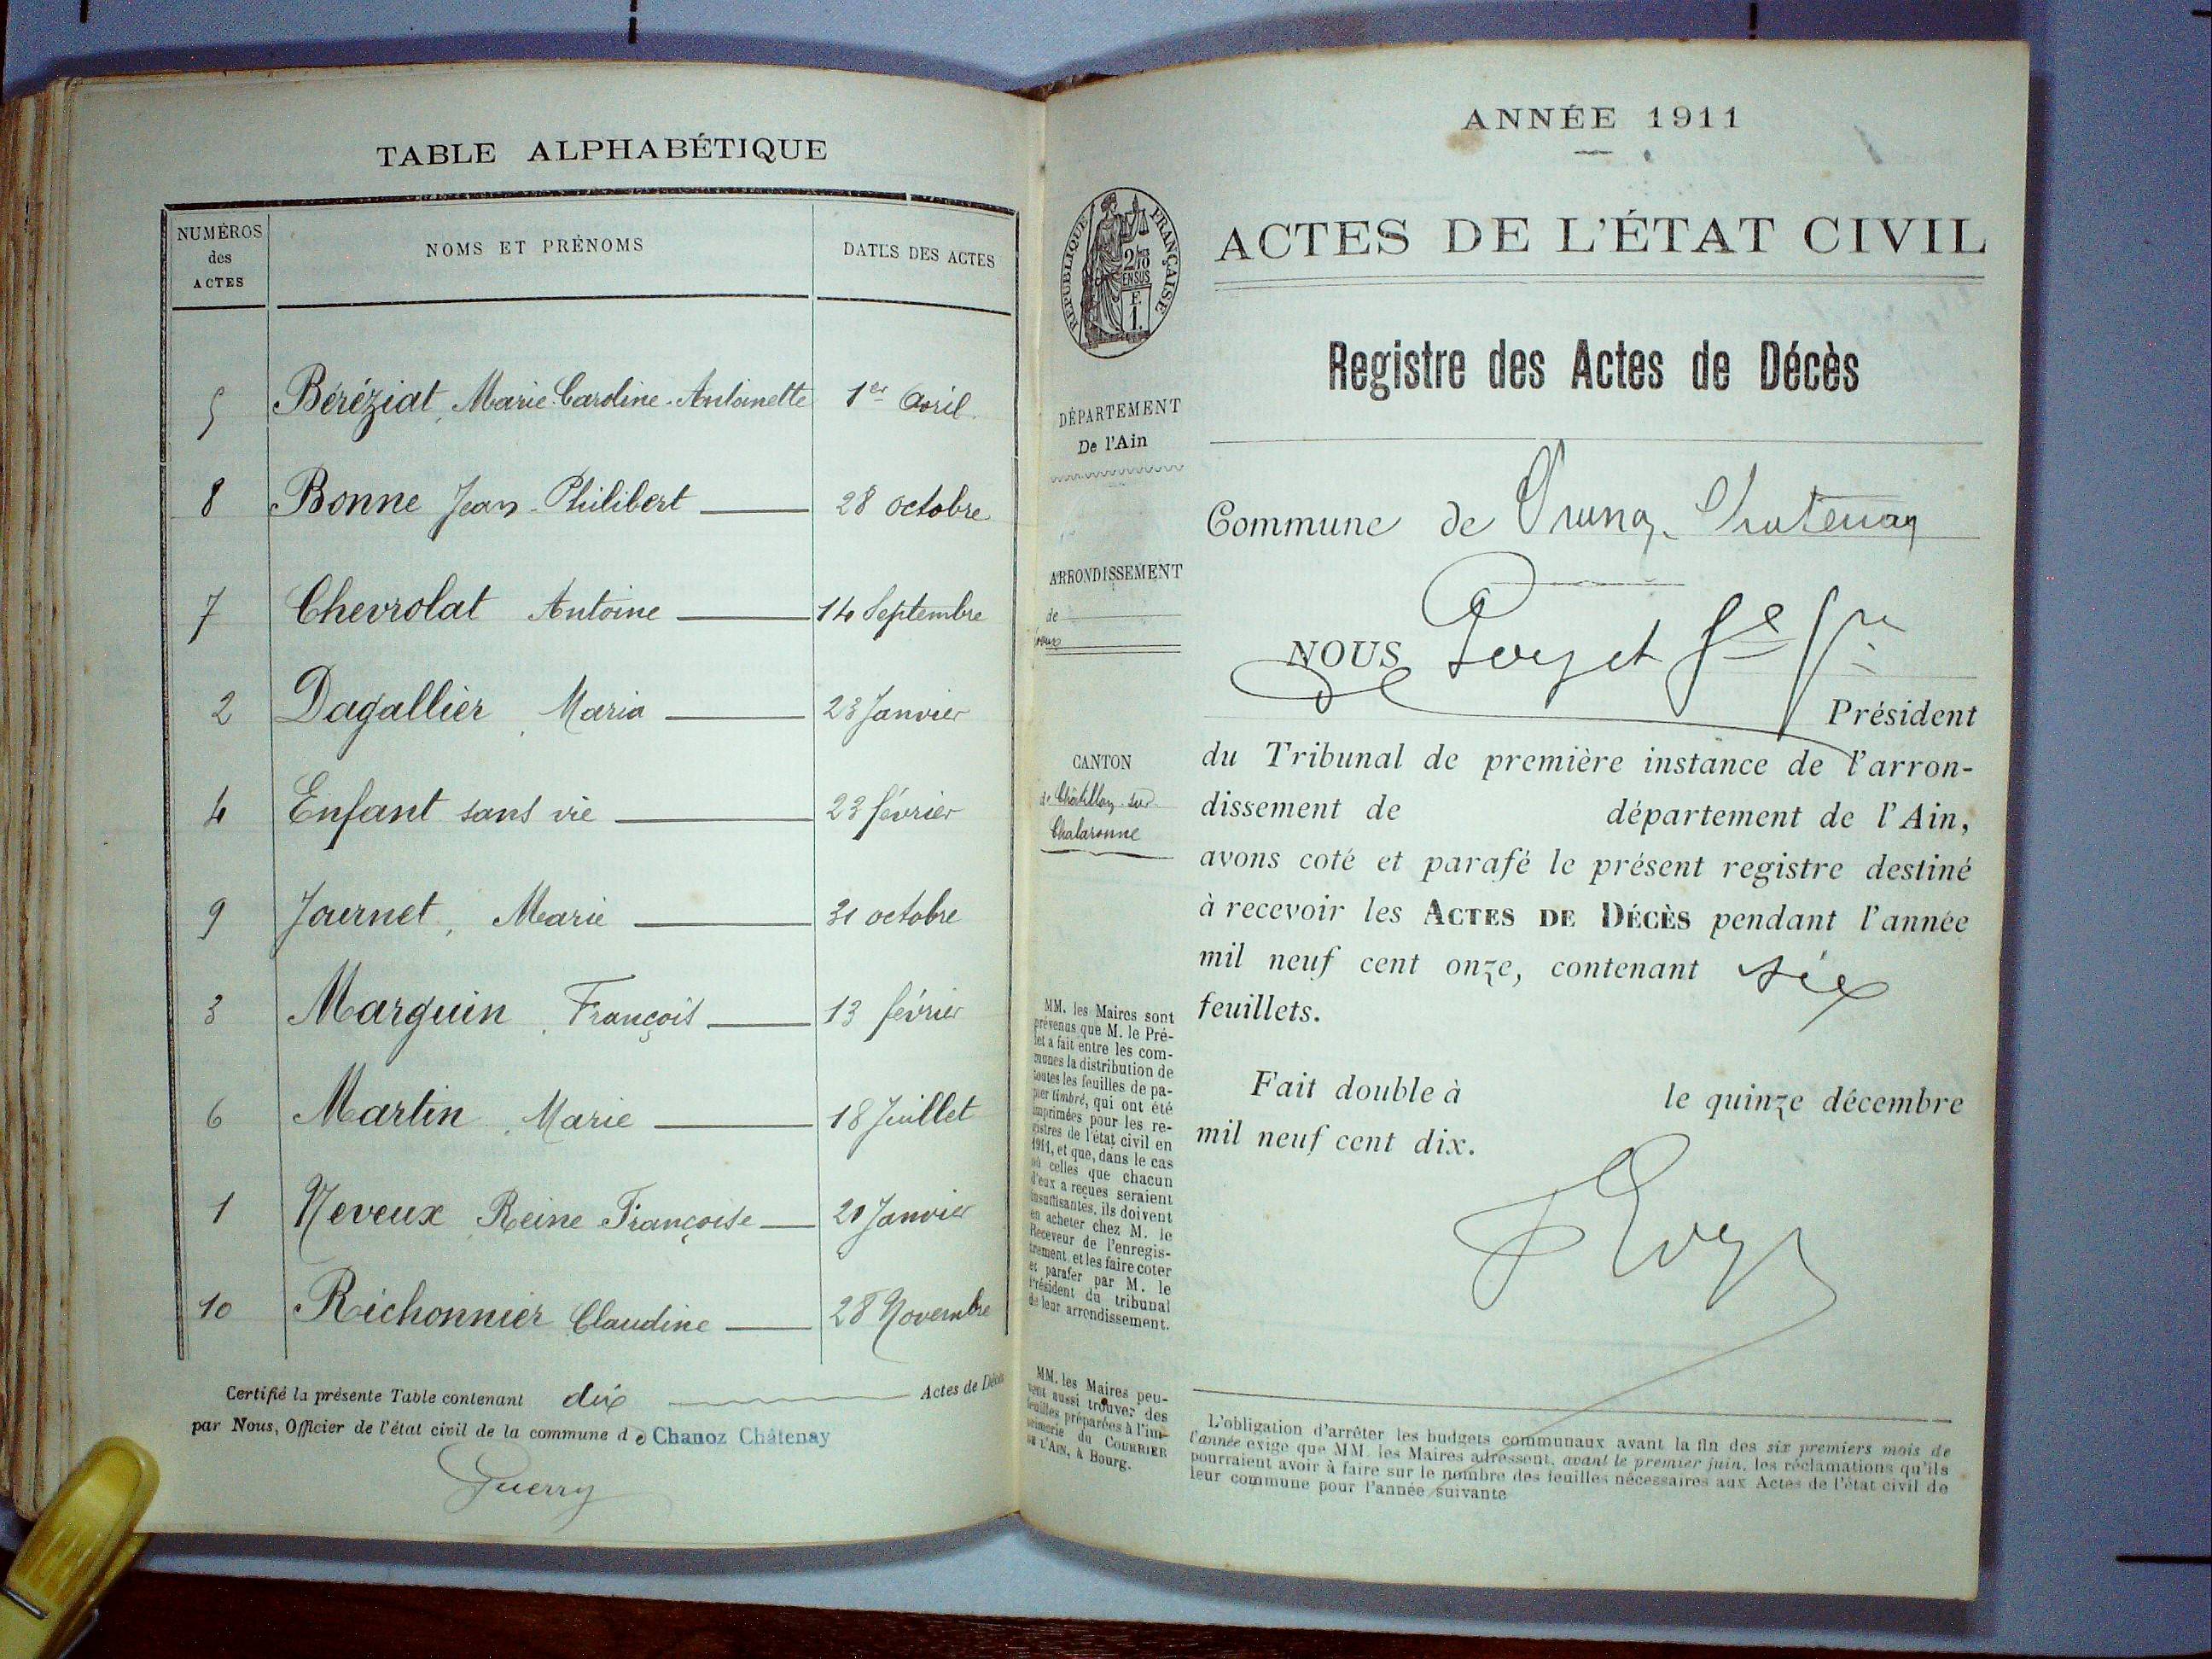 TABLE ALPHABÉTIQUE
NUMÉROS des ACTES NOMS ET PRÉNOMS DATES DES ACTES
5 Béréziat Marie Caroline-Antoinette 1er Avril
8 Bonne Jean-Philibert 28 octobre
7 Chevrolat Antoine 14 Septembre
2 Dagallier Maria 23 Janvier
4 Enfant sans vie 23 février
9 Journet, Marie 31 octobre
3 Marguin François 13 février
6 Martin Marie 18 Juillet
1 Neveux Reine Françoise Janvier
10 Richonnier Claudine 28 Novembre
Certifié la présente Table contenant dix Actes de Décès
par Nous, Officier de l'état civil de la commune de Chanoz Châtenay
Guerry
ANNÉE 1911
RÉPUBLIQUE FRANÇAISE
2/10
EN SUS
F.
1.
ACTES DE L'ÉTAT CIVIL
Registre des Actes de Décès
DÉPARTEMENT
De l'Ain
ARRONDISSEMENT
de
CANTON
de Châtillon-sur-
Chalaronne
MM. les Maires sont
prévenus que M. le Pré-
fet a fait entre les com-
munes la distribution de
toutes les feuilles de pa-
pier timbré, qui ont été
imprimées pour les re-
gistres de l'état civil en
1911, et que, dans le cas
où celles que chacun
d'eux a reçues seraient
insuffisantes, ils doivent
en acheter chez M. le
Receveur de l'enregis-
trement et les faire coter
et parafer par M. le
Président du tribunal
de leur arrondissement.
MM. les Maires peu-
vent aussi trouver des
feuilles préparées à l'im-
primerie du COURRIER
DE L'AIN, à Bourg.
Commune de Chanoz-Chatenay
NOUS
Président
du Tribunal de première instance de l'arron-
dissement de département de l'Ain,
avons coté et parafé le présent registre destiné
à recevoir les ACTES DE DÉCÈS pendant l'année
mil neuf cent onze, contenant six
feuillets.
Fait double à le quinze décembre
mil neuf cent dix.
L'obligation d'arrêter les budgets communaux avant la fin des six premiers mois de
l'année exige que MM. les Maires adressent, avant le premier juin, les réclamations qu'ils
pourraient avoir à faire sur le nombre des feuilles nécessaires aux Actes de l'état civil de
leur commune pour l'année suivante